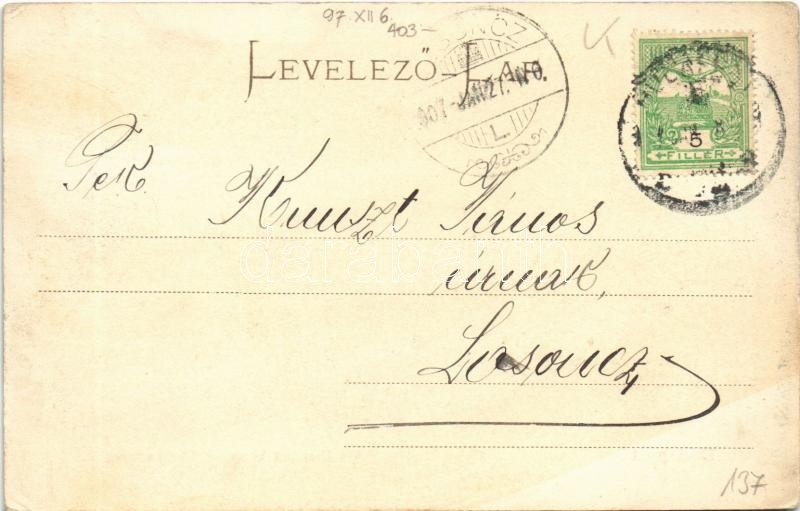 97. XII 6.
403-
LEVELEZŐ-LAP
907 JAN 27.
L
5
FILLÉR
Tek.
Kunszt János
úrnak,
Losoncz,
137